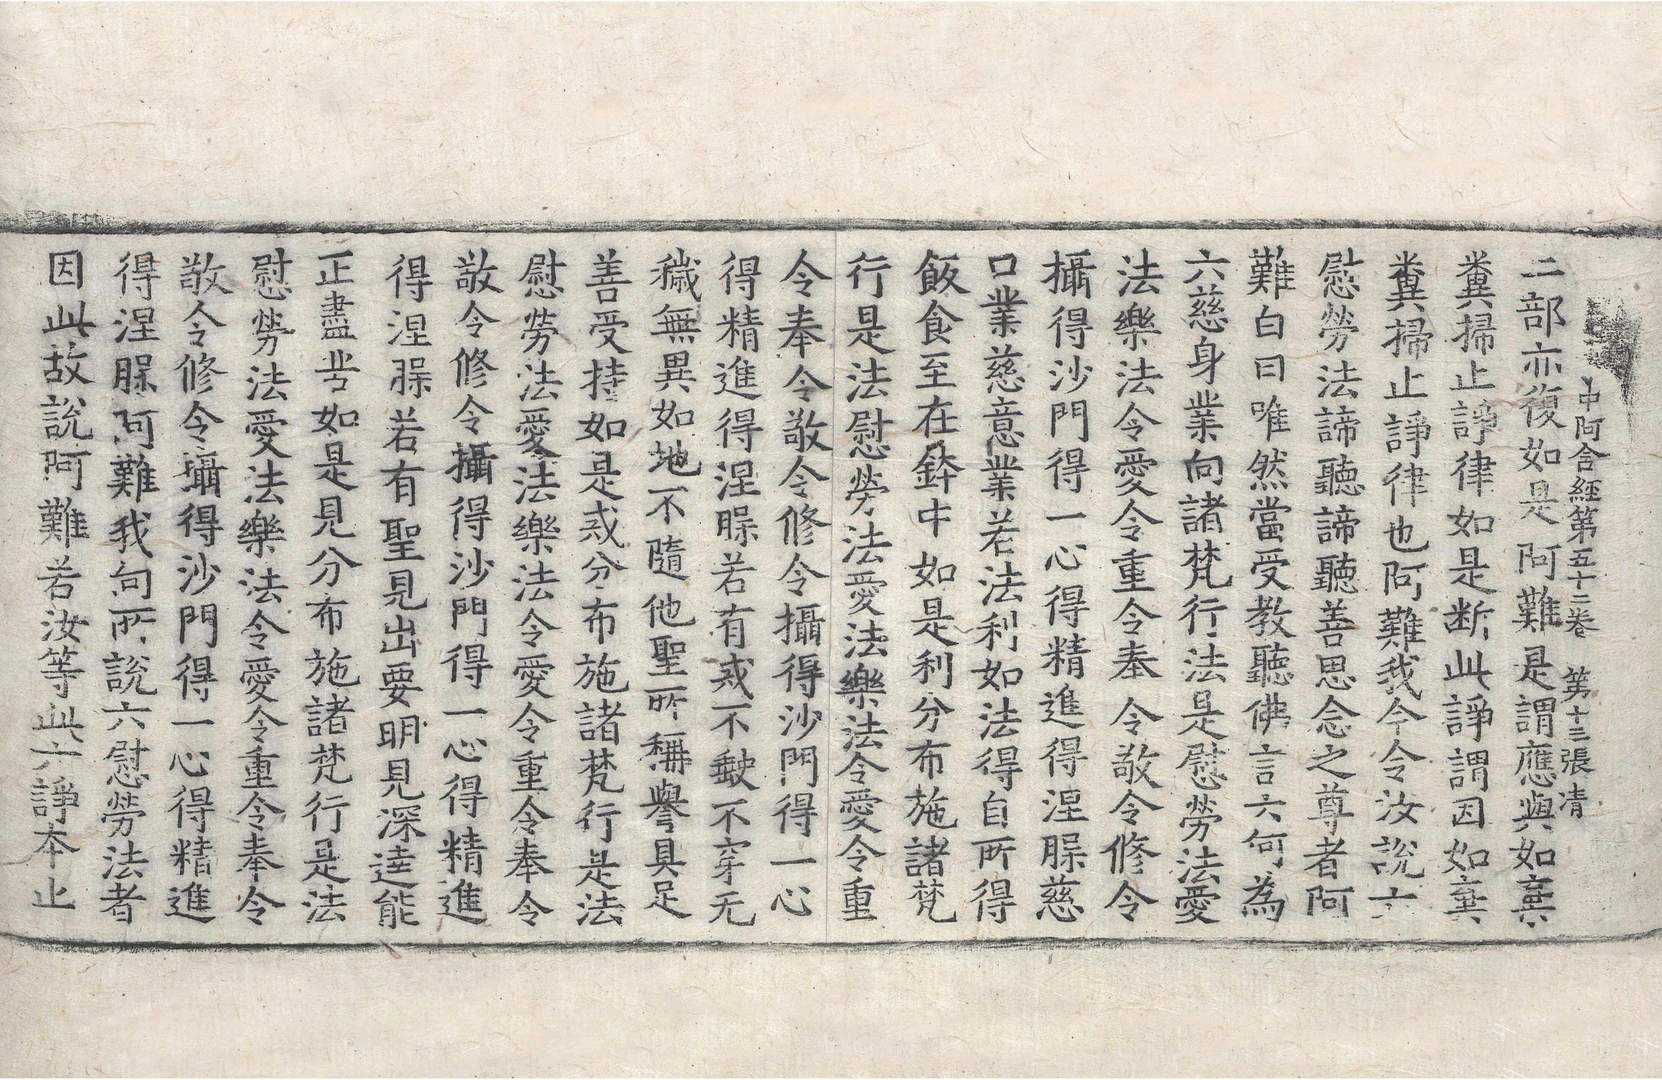 中阿含經第五十二卷　第十三張凊
二部亦復如是阿難是謂應與如棄
糞掃止諍律如是断此諍謂因如棄
糞掃止諍律也阿難我今令汝說六
慰勞法諦聽諦聽善思念之尊者阿
難白曰唯然當受教聽佛言六何為
六慈身業向諸梵行法是慰勞法愛
法樂法令愛令重令奉令敬令修令
攝得沙門得一心得精進得涅槃慈
口業慈意業若法利如法得自所得
飯食至在鉢中如是利分布施諸梵
行是法慰勞法愛法樂法令愛令重
令奉令敬令修令攝得沙門得一心
得精進得涅槃若有戒不𡙇不穿无
穢無異如地不隨他聖所稱譽具足
善受持如是戒分布施諸梵行是法
慰勞法愛法樂法令愛令重令奉令
敬令修令攝得沙門得一心得精進
得涅槃若有聖見出要明見深達能
正盡苦如是見分布施諸梵行是法
慰勞法愛法樂法令愛令重令奉令
敬令修令攝得沙門得一心得精進
得涅槃阿難我向所說六慰勞法者
因此故說阿難若汝等此六諍本止